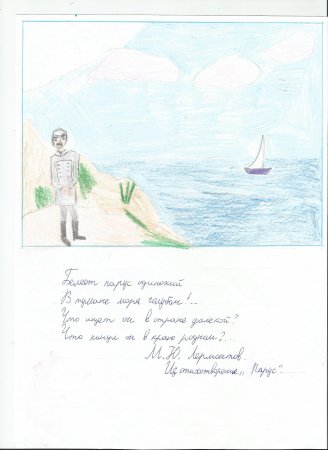 Белеет парус одинокий
В тумане моря голубом!..
Что ищет он в стране далекой?
Что кинул он в краю родном?...
М.Ю. Лермонтов.
Из стихотворенье „Парус".